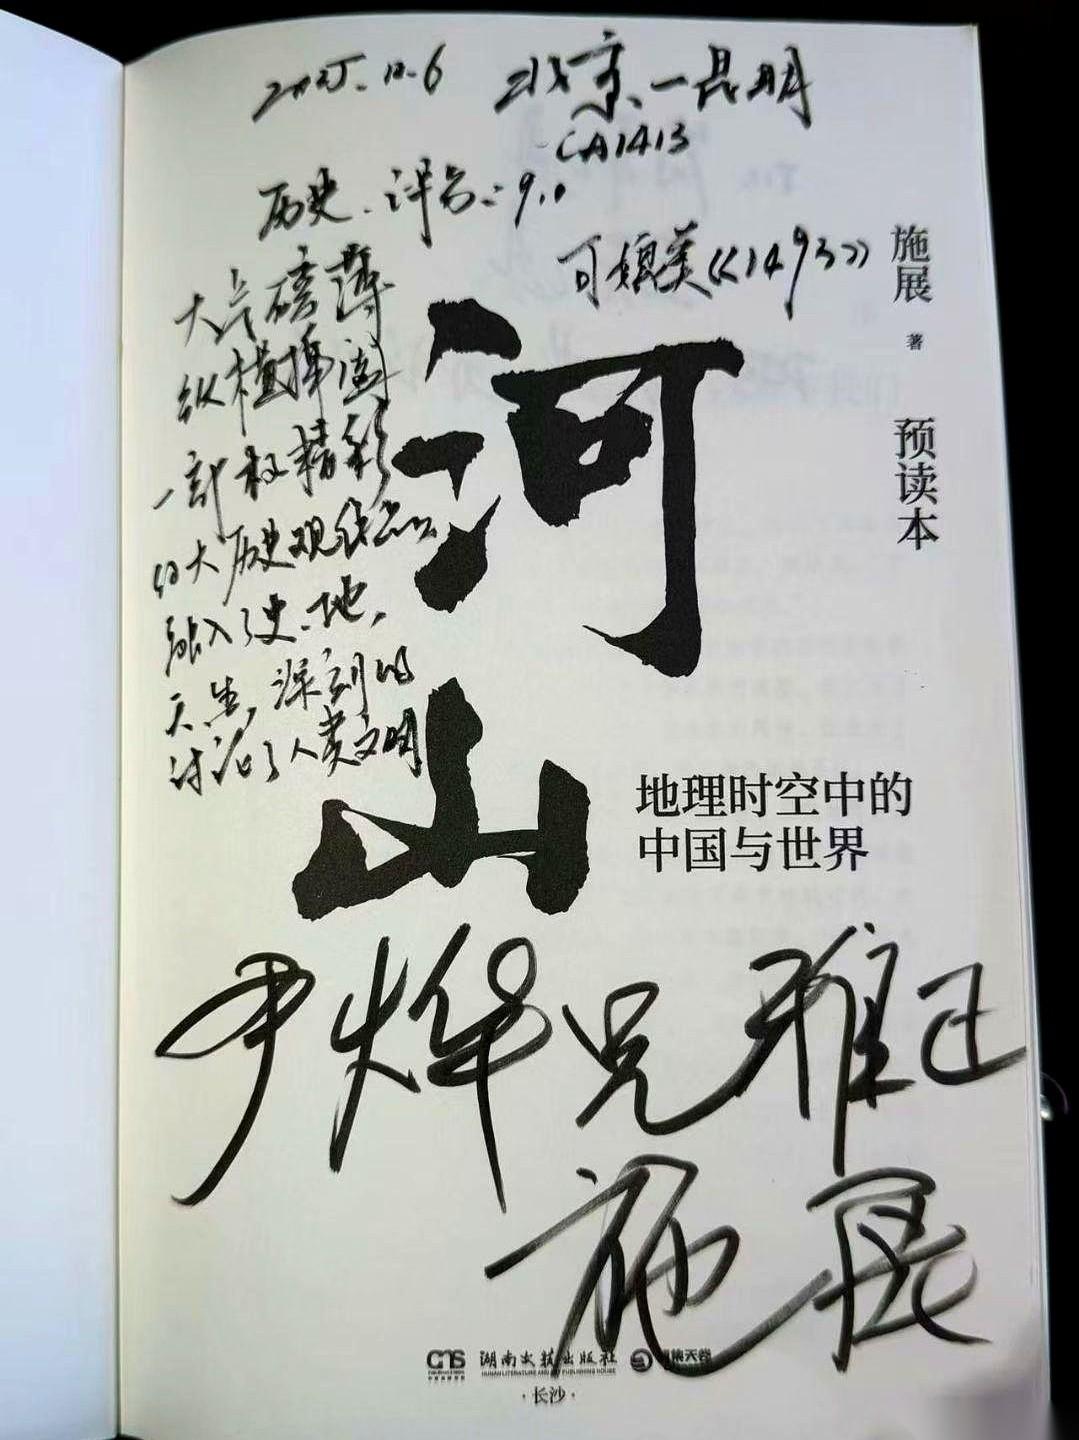 2025.12.6 北京—昆明
CA1413
历史、评分:9.0
可媲美《1493》
大气磅薄
纵横捭阖
一部极精彩
的大历史观作品
融入了史、地,
天、生,深刻的
讨论了人类文明
施展 著 预读本
河山
地理时空中的
中国与世界
尹烨兄雅正
施展
湖南文艺出版社
HUNAN LITERATURE AND ART PUBLISHING HOUSE
·长沙·